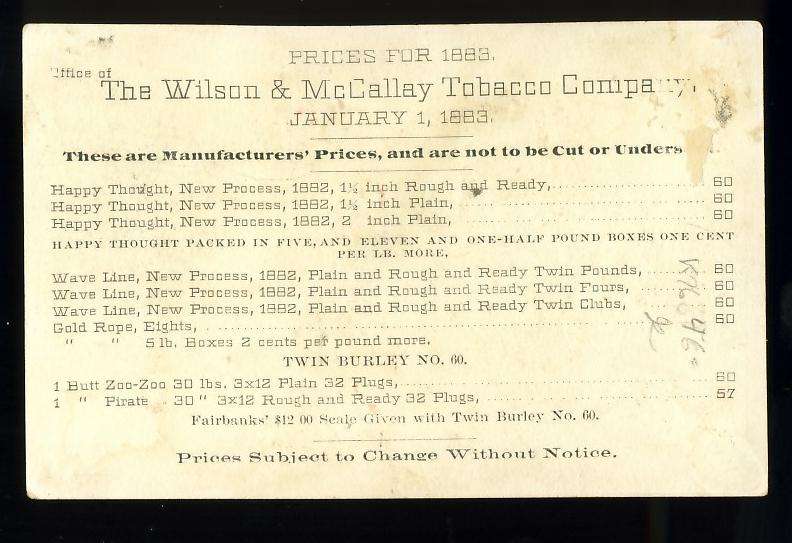 PRICES FOR 1883.
Office of
The Wilson & McCallay Tobacco Company.
JANUARY 1, 1883.
These are Manufacturers' Prices, and are not to be Cut or Unders
Happy Thought, New Process, 1882, 1½ inch Rough and Ready, 60
Happy Thought, New Process, 1882, 1½ inch Plain, 60
Happy Thought, New Process, 1882, 2 inch Plain, 60
HAPPY THOUGHT PACKED IN FIVE, AND ELEVEN AND ONE-HALF POUND BOXES ONE CENT
PER LB. MORE,
Wave Line, New Process, 1882, Plain and Rough and Ready Twin Pounds, 60
Wave Line, New Process, 1882, Plain and Rough and Ready Twin Fours, 60
Wave Line, New Process, 1882, Plain and Rough and Ready Twin Clubs, 60
Gold Rope, Eights, 60
" " 5 lb. Boxes 2 cents per pound more.
TWIN BURLEY NO. 60.
1 Butt Zoo-Zoo 30 lbs. 3x12 Plain 32 Plugs, 60
1 " Pirate 30 " 3x12 Rough and Ready 32 Plugs, 57
Fairbanks' $12 00 Scale Given with Twin Burley No. 60.
Prices Subject to Change Without Notice.